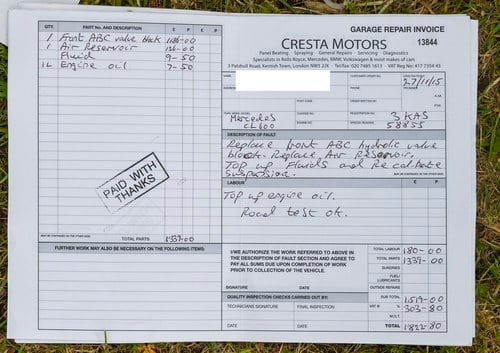 GARAGE REPAIR INVOICE
CRESTA MOTORS 13844
Panel Beating - Spraying - General Repairs - Servicing - Diagnostics
Specialists in Rolls Royce, Mercedes, BMW, Volkswagen & most makes of cars
3 Patshull Road, Kentish Town, London NW5 2JX
QTY. PART No. AND DESCRIPTION £ P
1 Front ABC valve block 1186-00
1 Air Reservoir 136-00
Fluid 9-50
1L Engine oil 7-50
PAID WITH
THANKS
TOTAL PARTS 1339-00
FURTHER WORK MAY ALSO BE NECESSARY ON THE FOLLOWING ITEMS:
27/11/15
Mercedes
CL600
3 KAS
58855
DESCRIPTION OF FAULT
Replace front ABC hydrolic valve
block. Replace Air Reservoir.
Top up Fluids and Recalibrate
suspension.
LABOUR £ P
Top up engine oil.
Road test ok.
I/WE AUTHORIZE THE WORK REFERRED TO ABOVE IN
THE DESCRIPTION OF FAULT SECTION AND AGREE TO
PAY ALL SUMS DUE UPON COMPLETION OF WORK
PRIOR TO COLLECTION OF THE VEHICLE.
SIGNATURE DATE
QUALITY INSPECTION CHECKS CARRIED OUT BY:
TECHNICIANS SIGNATURE FINAL INSPECTION
DATE DATE
TOTAL LABOUR 180-00
TOTAL PARTS 1339-00
SUNDRIES
FUEL/
LUBRICANTS
OUTSIDE REPAIRS
SUB TOTAL 1519-00
VAT @ % 303-80
M.O.T.
TOTAL 1822-80